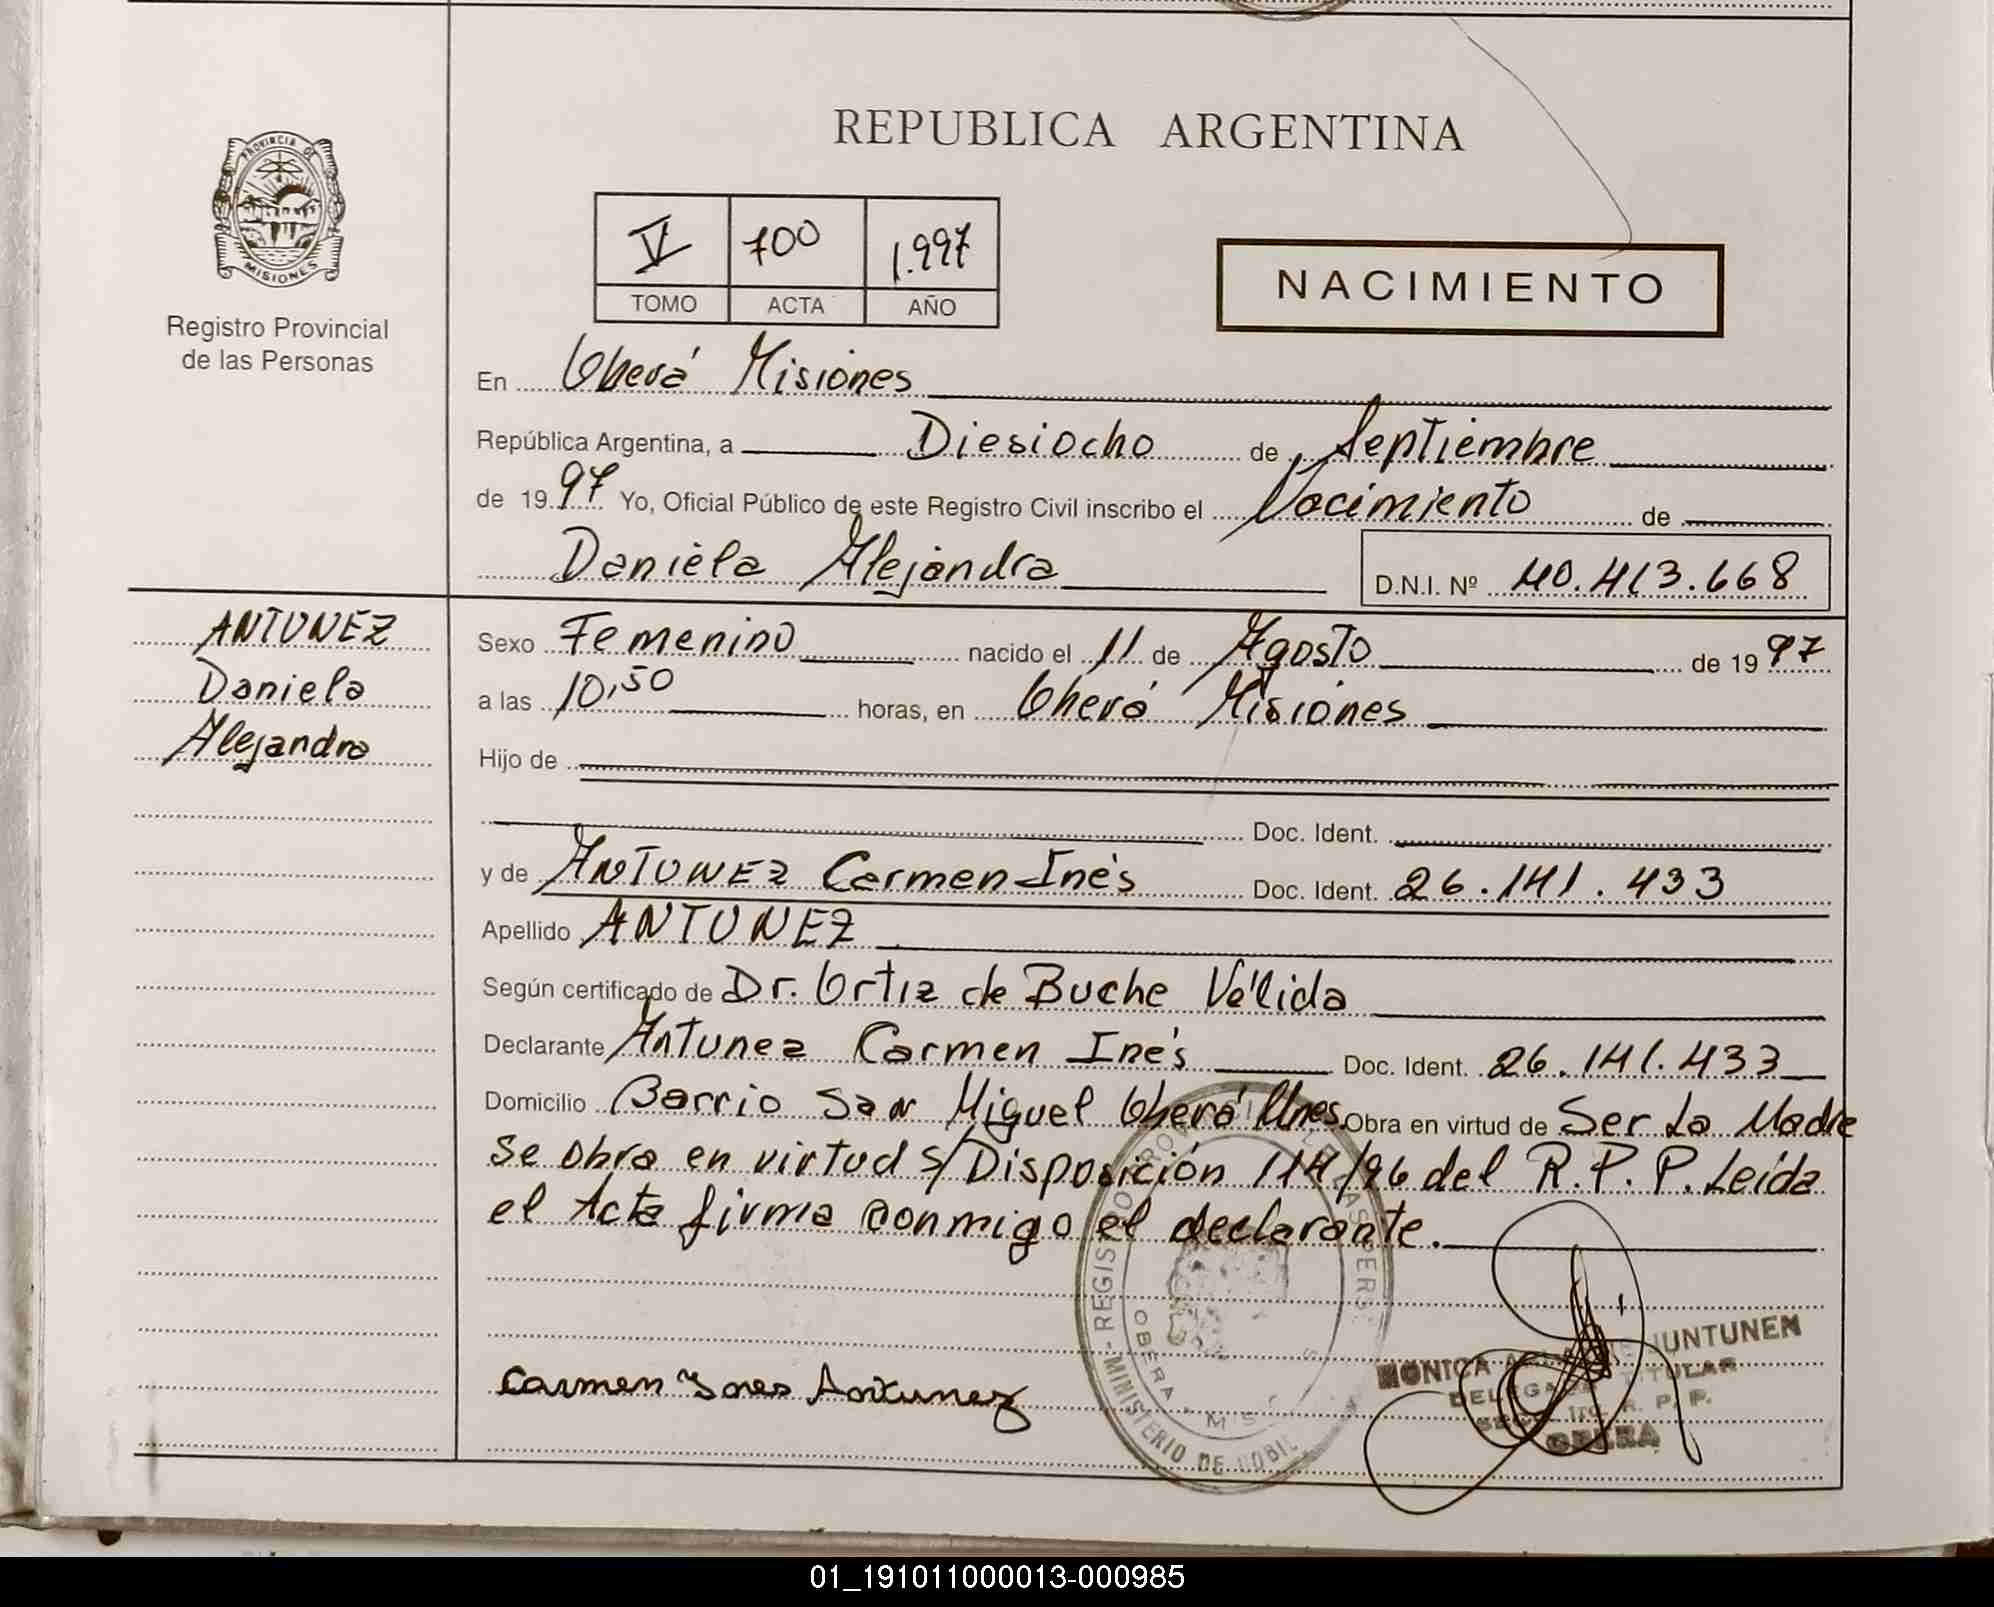 REPUBLICA ARGENTINA
PROVINCIA DE
MISIONES
Registro Provincial
de las Personas
V 700 1.997
TOMO ACTA AÑO
NACIMIENTO
En Oberá Misiones
República Argentina, a Diesiocho de Septiembre
de 1997 Yo, Oficial Público de este Registro Civil inscribo el Nacimiento de
Daniela Alejandra D.N.I. Nº 40.413.668
ANTUNEZ
Daniela
Alejandra
Sexo Femenino nacido el 11 de Agosto de 1997
a las 10,50 horas, en Oberá Misiones
Hijo de
Doc. Ident.
y de ANTUNEZ Carmen Inés Doc. Ident. 26.141.433
Apellido ANTUNEZ
Según certificado de Dr. Ortiz de Buche Vélida
Declarante Antunez Carmen Inés Doc. Ident. 26.141.433
Domicilio Barrio San Miguel Oberá Mnes. Obra en virtud de Ser La Madre
se obra en virtud s/Disposición 114/96 del R.P.P. Leída
el Acta firma conmigo el declarante.
Carmen Ines Antunez
MONICA
UNTUNEN
TITULAR
R. P. P.
OBERA
MINISTERIO DE
OBERA
01_191011000013-000985